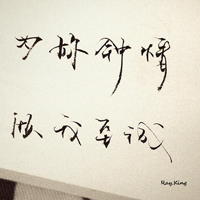 为妳钟情
倾我至诚
Ray.King